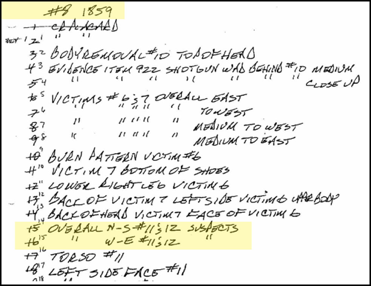 #8 1859
1 CRANGARD
2
3 BODY REMOVAL #10 TOP OF HEAD
4 EVIDENCE ITEM 922 SHOTGUN WAD BEHIND #10 MEDIUM
5 CLOSE UP
6 VICTIMS #6 & 7 OVERALL EAST
7 " " " " TO WEST
8 " " " " MEDIUM TO WEST
9 " " " " MEDIUM TO EAST
10 BURN PATTERN VICTIM #6
11 VICTIM 7 BOTTOM OF SHOES
12 LOWER RIGHT LEG VICTIM 6
13 BACK OF VICTIM 7 LEFT SIDE VICTIM 6 UPR BODY
14 BACK OF HEAD VICTIM 7 FACE OF VICTIM 6
15 OVERALL N-S #11 & 12 SUSPECTS
16 " W-E #11 & 12 "
17 TORSO #11
18 LEFT SIDE FACE #11